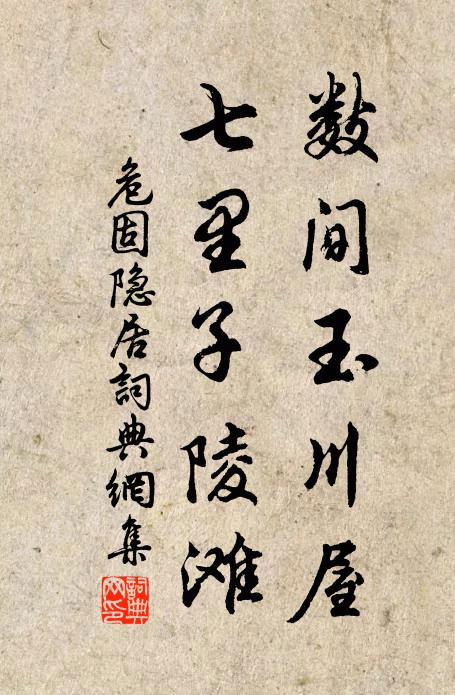 数间玉川屋
七里子陵滩
危固隐居詞典網集
詞典网印